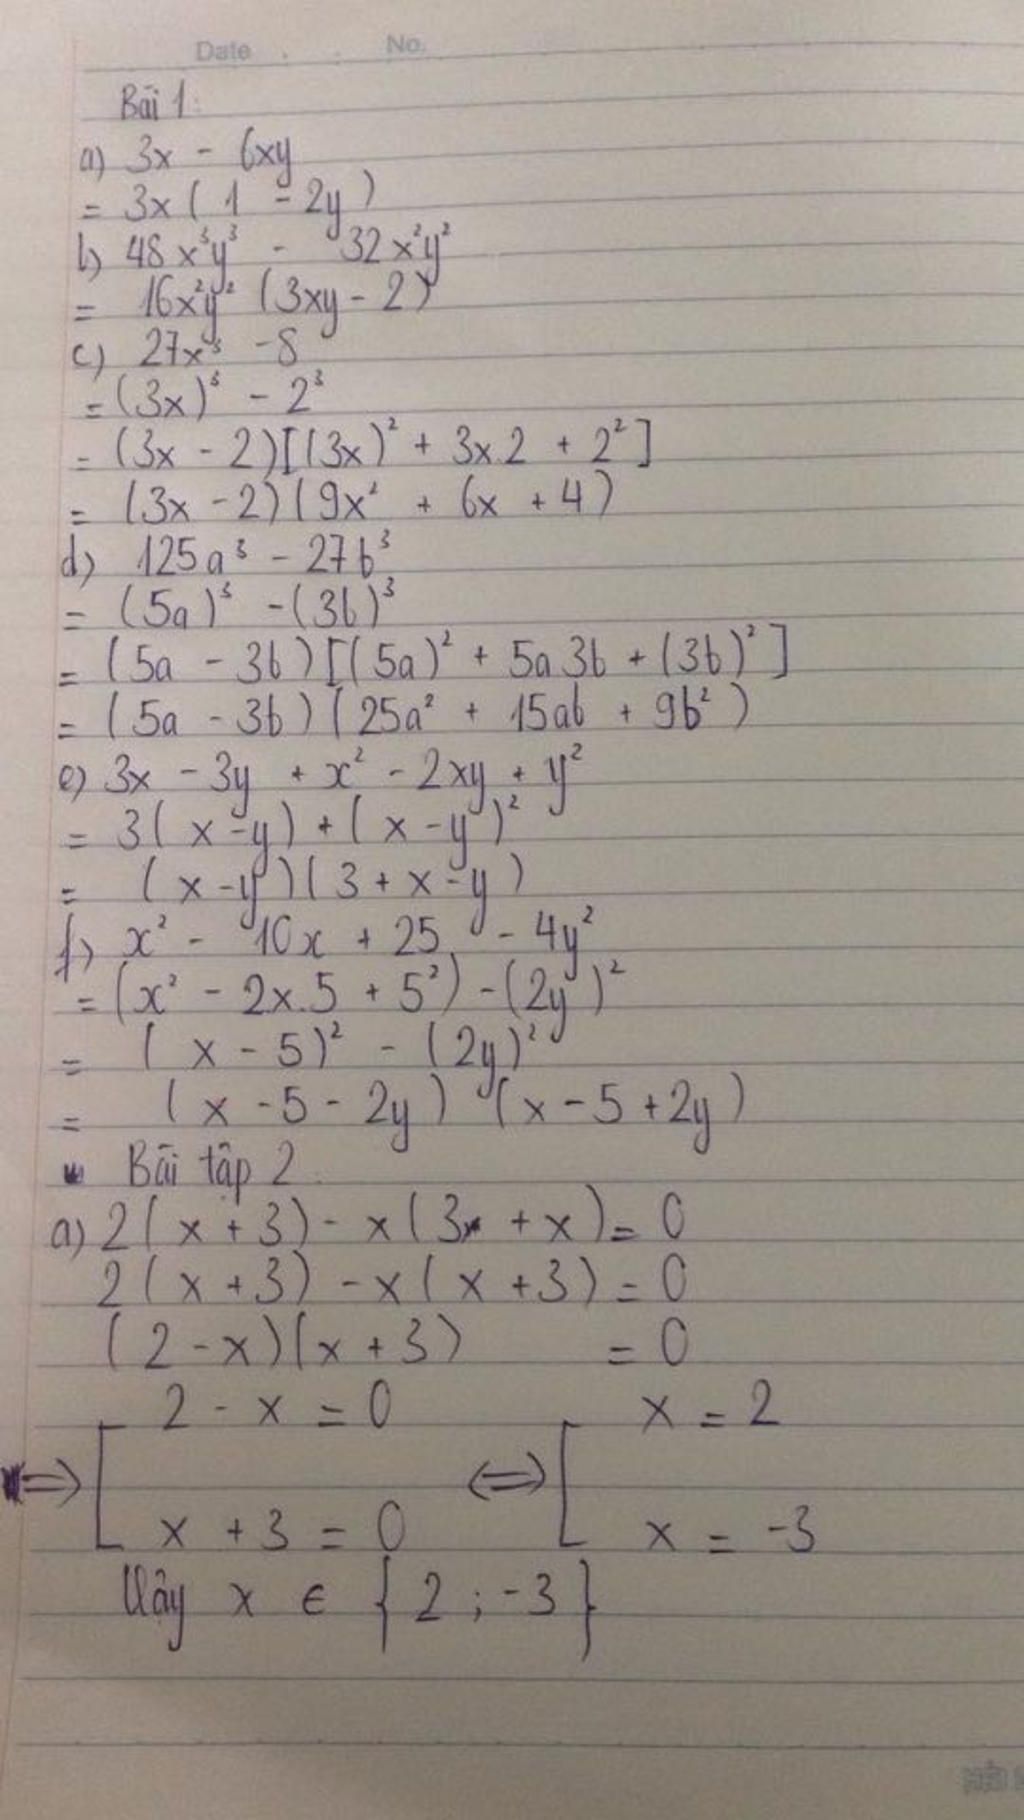 Date . . No.
Bài 1:
a) 3x - 6xy
= 3x( 1 - 2y )
b) 48x³y³ - 32x²y²
= 16x²y² (3xy - 2)
c) 27x³ - 8
= (3x)³ - 2³
= (3x - 2)[(3x)² + 3x.2 + 2²]
= (3x - 2)(9x² + 6x + 4)
d) 125a³ - 27b³
= (5a)³ - (3b)³
= (5a - 3b)[(5a)² + 5a 3b + (3b)²]
= (5a - 3b)(25a² + 15ab + 9b²)
e) 3x - 3y + x² - 2xy + y²
= 3(x - y) + (x - y)²
= (x - y)(3 + x - y)
f) x² - 10x + 25 - 4y²
= (x² - 2x.5 + 5²) - (2y)²
= (x - 5)² - (2y)²
= (x - 5 - 2y) (x - 5 + 2y)
Bài tập 2
a) 2(x + 3) - x(3 + x) = 0
2(x + 3) - x(x + 3) = 0
(2 - x)(x + 3) = 0
2 - x = 0 x = 2
=> [ <=> [
x + 3 = 0 x = -3
Vây x ∈ {2 ; -3}